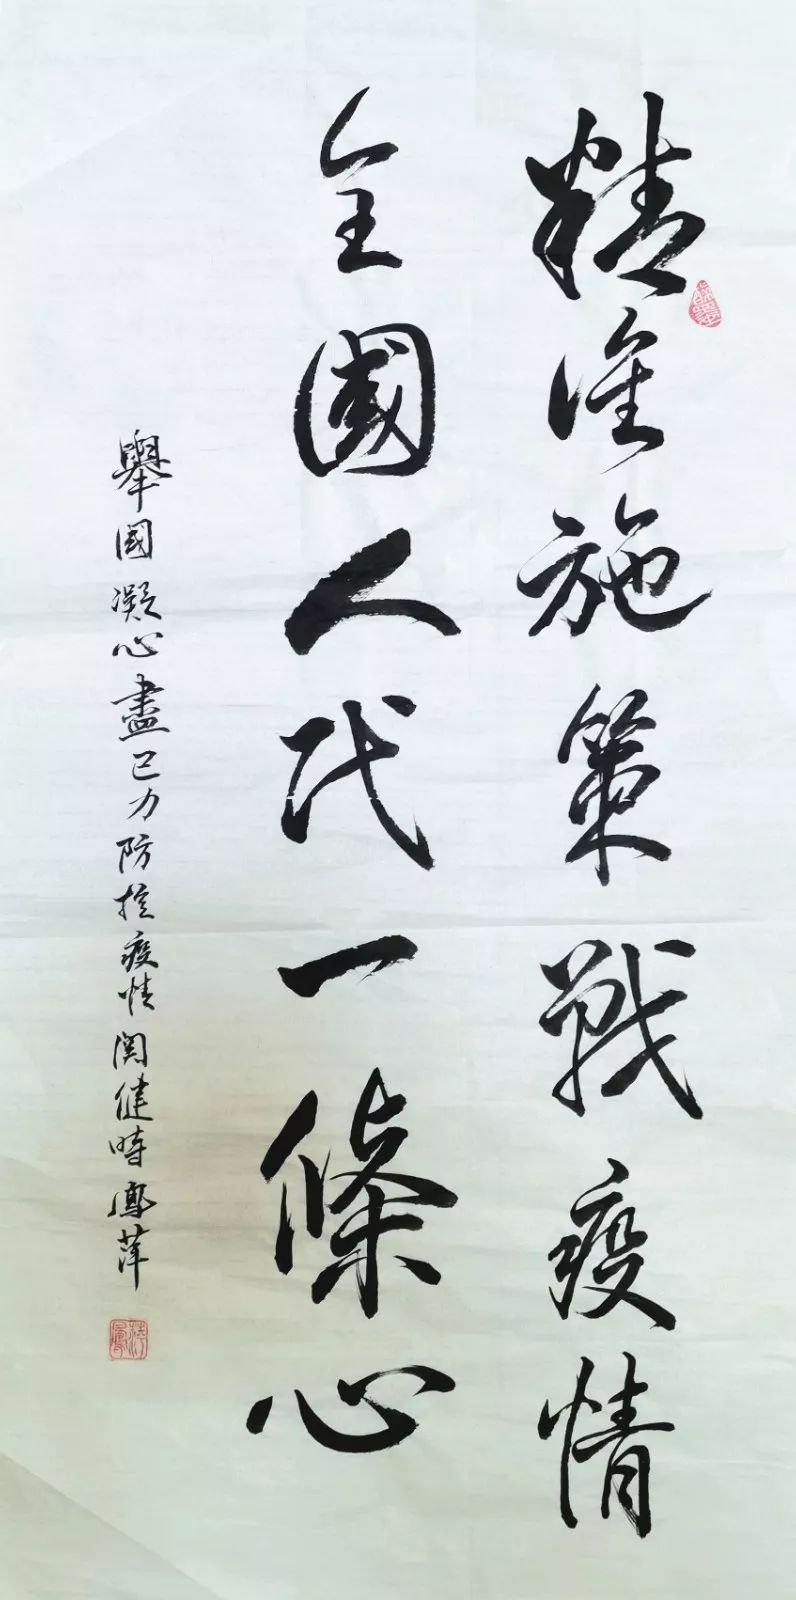 精准施策戰疫情
全國人代一條心
舉國凝心盡己力防控疫情関健時鳳萍